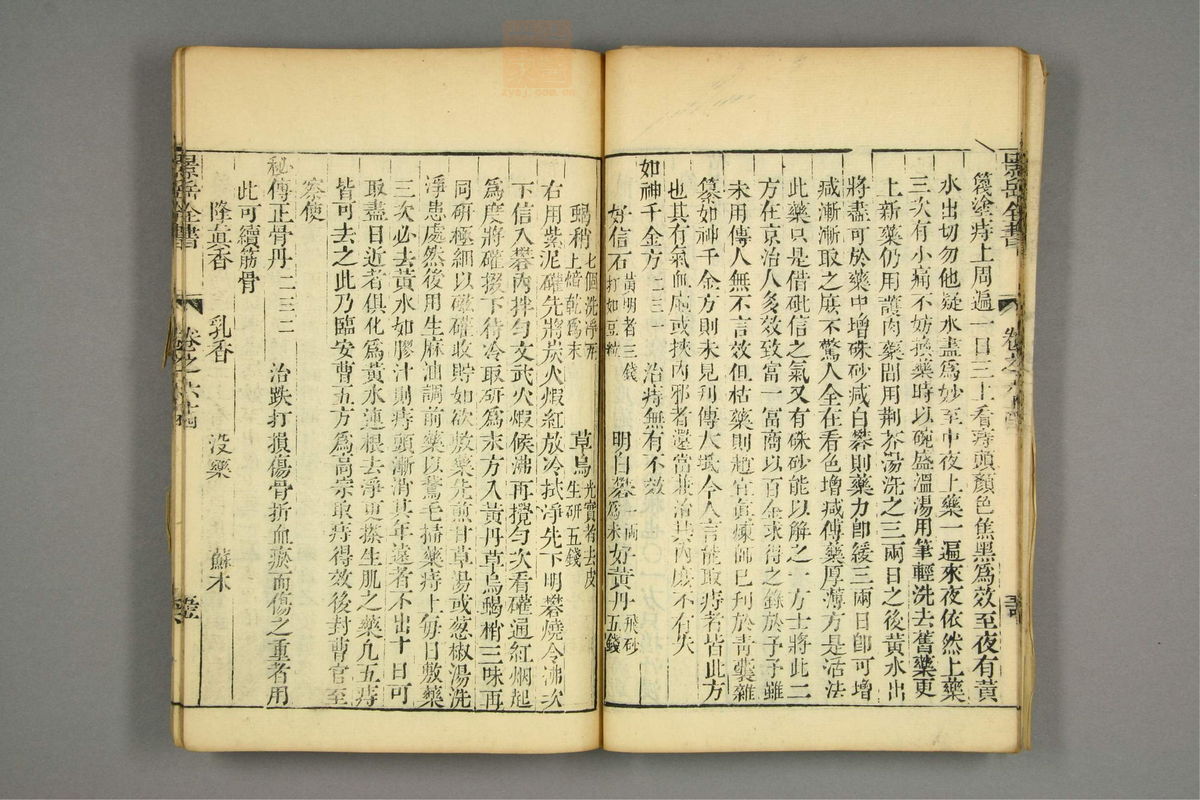 景岳全書
卷之六十四
箋塗痔上周遍一日三上看痔頭顏色焦黑爲效至夜有黃
水出切勿他疑水盡爲妙至中夜上藥一遍來夜依然上藥
三次有小痛不妨換藥時以碗盛溫湯用筆輕洗去舊藥更
上新藥仍用護肉藥間用荆芥湯洗之三兩日之後黃水出
將盡可於藥中增硃砂减白礬則藥力卽緩三兩日卽可增
减漸漸取之庶不驚人全在看色增减傅藥厚薄方是活法
此藥只是借砒信之氣又有硃砂能以解之一方士將此二
方在京治人多效致富一富商以百金求得之錄於予予雖
未用傳人無不言效但枯藥則趙宜眞煉師已刋於靑囊雜
纂如神千金方則未見刋傳大抵今人言能取痔者皆此方
也其有氣血虛或挾內邪者還當兼治其內庶不有失
如神千金方二三一 治痔無有不效
好信石黃明者三錢打如豆粒 明白礬一兩爲末 好黃丹飛砂五錢
蝎稍七個洗淨瓦上焙乾爲末 草烏光實者去皮生研五錢
右用紫泥礶先將炭火煆紅放冷拭淨先下明礬燒令沸次
下信入礬內拌勻文武火煆候沸再攪勻次看礶通紅烟起
爲度將礶掇下待冷取研爲末方入黃丹草烏蝎梢三味再
同研極細以磁礶收貯如欲敷藥先煎甘草湯或葱椒湯洗
淨患處然後用生麻油調前藥以鵞毛掃藥痔上每日敷藥
三次必去黃水如膠汁則痔頭漸消其年遠者不出十日可
取盡日近者俱化爲黃水連根去淨更搽生肌之藥凡五痔
皆可去之此乃臨安曹五方爲高宗取痔得效後封曹官至
察使
秘傳正骨丹二三二 治跌打損傷骨折血瘀而傷之重者用
此可續筋骨
隆眞香 乳香 没藥 蘇木
景岳全書
卷之六十四